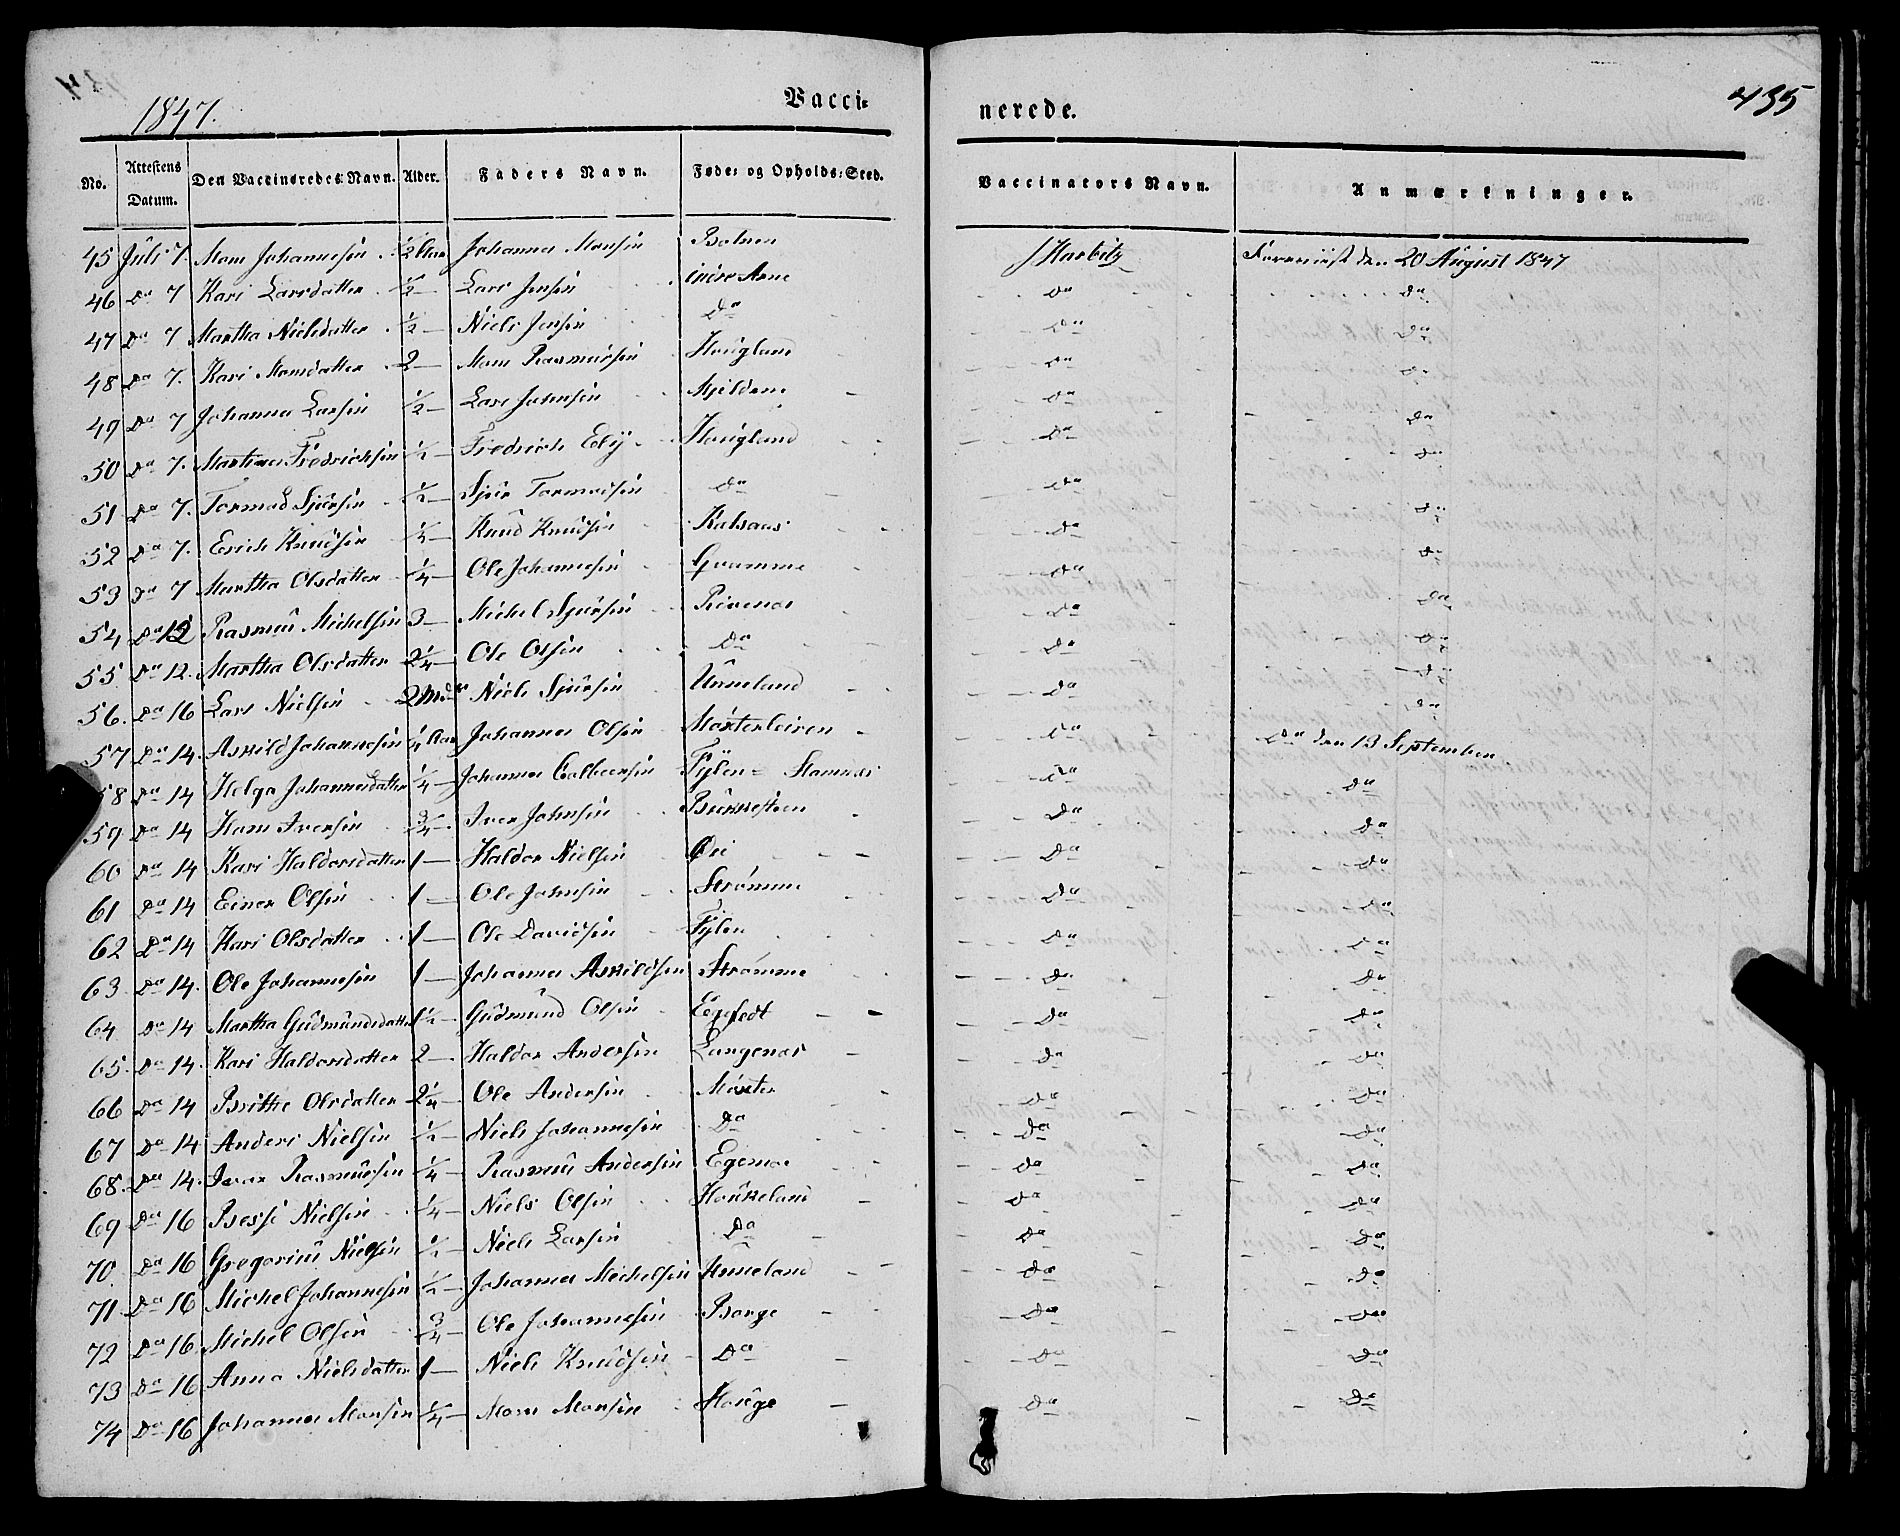 1847. Vacci= nerede. 435
No. Attestens Datum. Den Vaccineredes Navn. Alder. Faders Navn. Føde= og Opholds=Sted. Vaccinators Navn. Anmærkninger.
45 Juli 7. Mons Johannesen 1/2 Aar Johannes Monsen J Harbitz Foreviist den 20 August 1847
46 Do 7 Kari Larsdatter 1/2 — Lars Jensen indre Arne Do Do
47 Do 7 Martha Nielsdatter 1/2 — Niels Jensen Do Do Do
48 Do 7. Kari Monsdatter 2 — Mons Rasmusen Hougland Do Do
49 Do 7 Johannes Larsen 1/2 — Lars Johnsen Mjeldem Do Do
50 Do 7. Martinus Fredrichsen 1/2 — Fredrich Hougland Do Do
51 Do 7. Tormod Sjursen 1/2 — Sjur Tormodsen Do Do Do
52 Do 7. Erich Knudsen 1/2 — Knud Knudsen Kalsaas Do Do
53 Do 7 Martha Olsdatter 1/4 — Ole Johannesen Do Do
54 Do 12 Rasmus Michelsen 3 — Michel Sjursen Rivenes Do Do
55 Do 12. Martha Olsdatter 2 1/4 — Ole Olsen Do Do Do
56. Do 16 Lars Nielsen 2 Mdr Niels Sjursen Unneland Do Do
57 Do 14. Askild Johannesen 1/4 Aar Johannes Olsen Møxterleiren Do Do den 13 September
58 Do 14 Helga Johannesdatter 1/4 — Johannes Fylen = Stamnæs Do Do
59 Do 14 Hans Iversen 3/4 — Iver Johnsen Do Do
60 Do 14 Kari Haldorsdatter 1 — Haldor Nielsen Do Do
61 Do 14 Einer Olsen 1 — Ole Johnsen Strømme Do Do
62 Do 14 Kari Olsdatter 1 — Ole Davidsen Fylen Do Do
63 Do 14. Ole Johannesen 1 — Johannes Askildsen Strømme Do Do
64 Do 14 Martha Gudmundsdatter 1 1/2 — Gudmund Olsen Do Do
65. Do 14. Kari Haldorsdatter 2 — Haldor Andersen Langenes Do Do
66 Do 14 Britthe Olsdatter 2 1/4 — Ole Andersen Møxter Do Do
67 Do 14 Anders Nielsen 1/2 — Niels Johannesen Do Do Do
68. Do 14. Iver Rasmusen 1/4 — Rasmus Andersen Do Do
69 Do 16 Nielsen 1/4 — Niels Olsen Houkeland Do Do
70 Do 16 Gregorius Nielsen 1/2 — Niels Larsen Do Do Do
71 Do 16 Michel Johannesen 1/2 — Johannes Michelsen Unneland Do Do
72 Do 16. Michel Olsen 3/4 — Ole Johannesen Borge Do Do
73 Do 16 Anna Nielsdatter 1 — Niels Knudsen Do Do Do
74 Do 16 Johannes Monsen 1/4 — Mons Monsen Houge Do Do